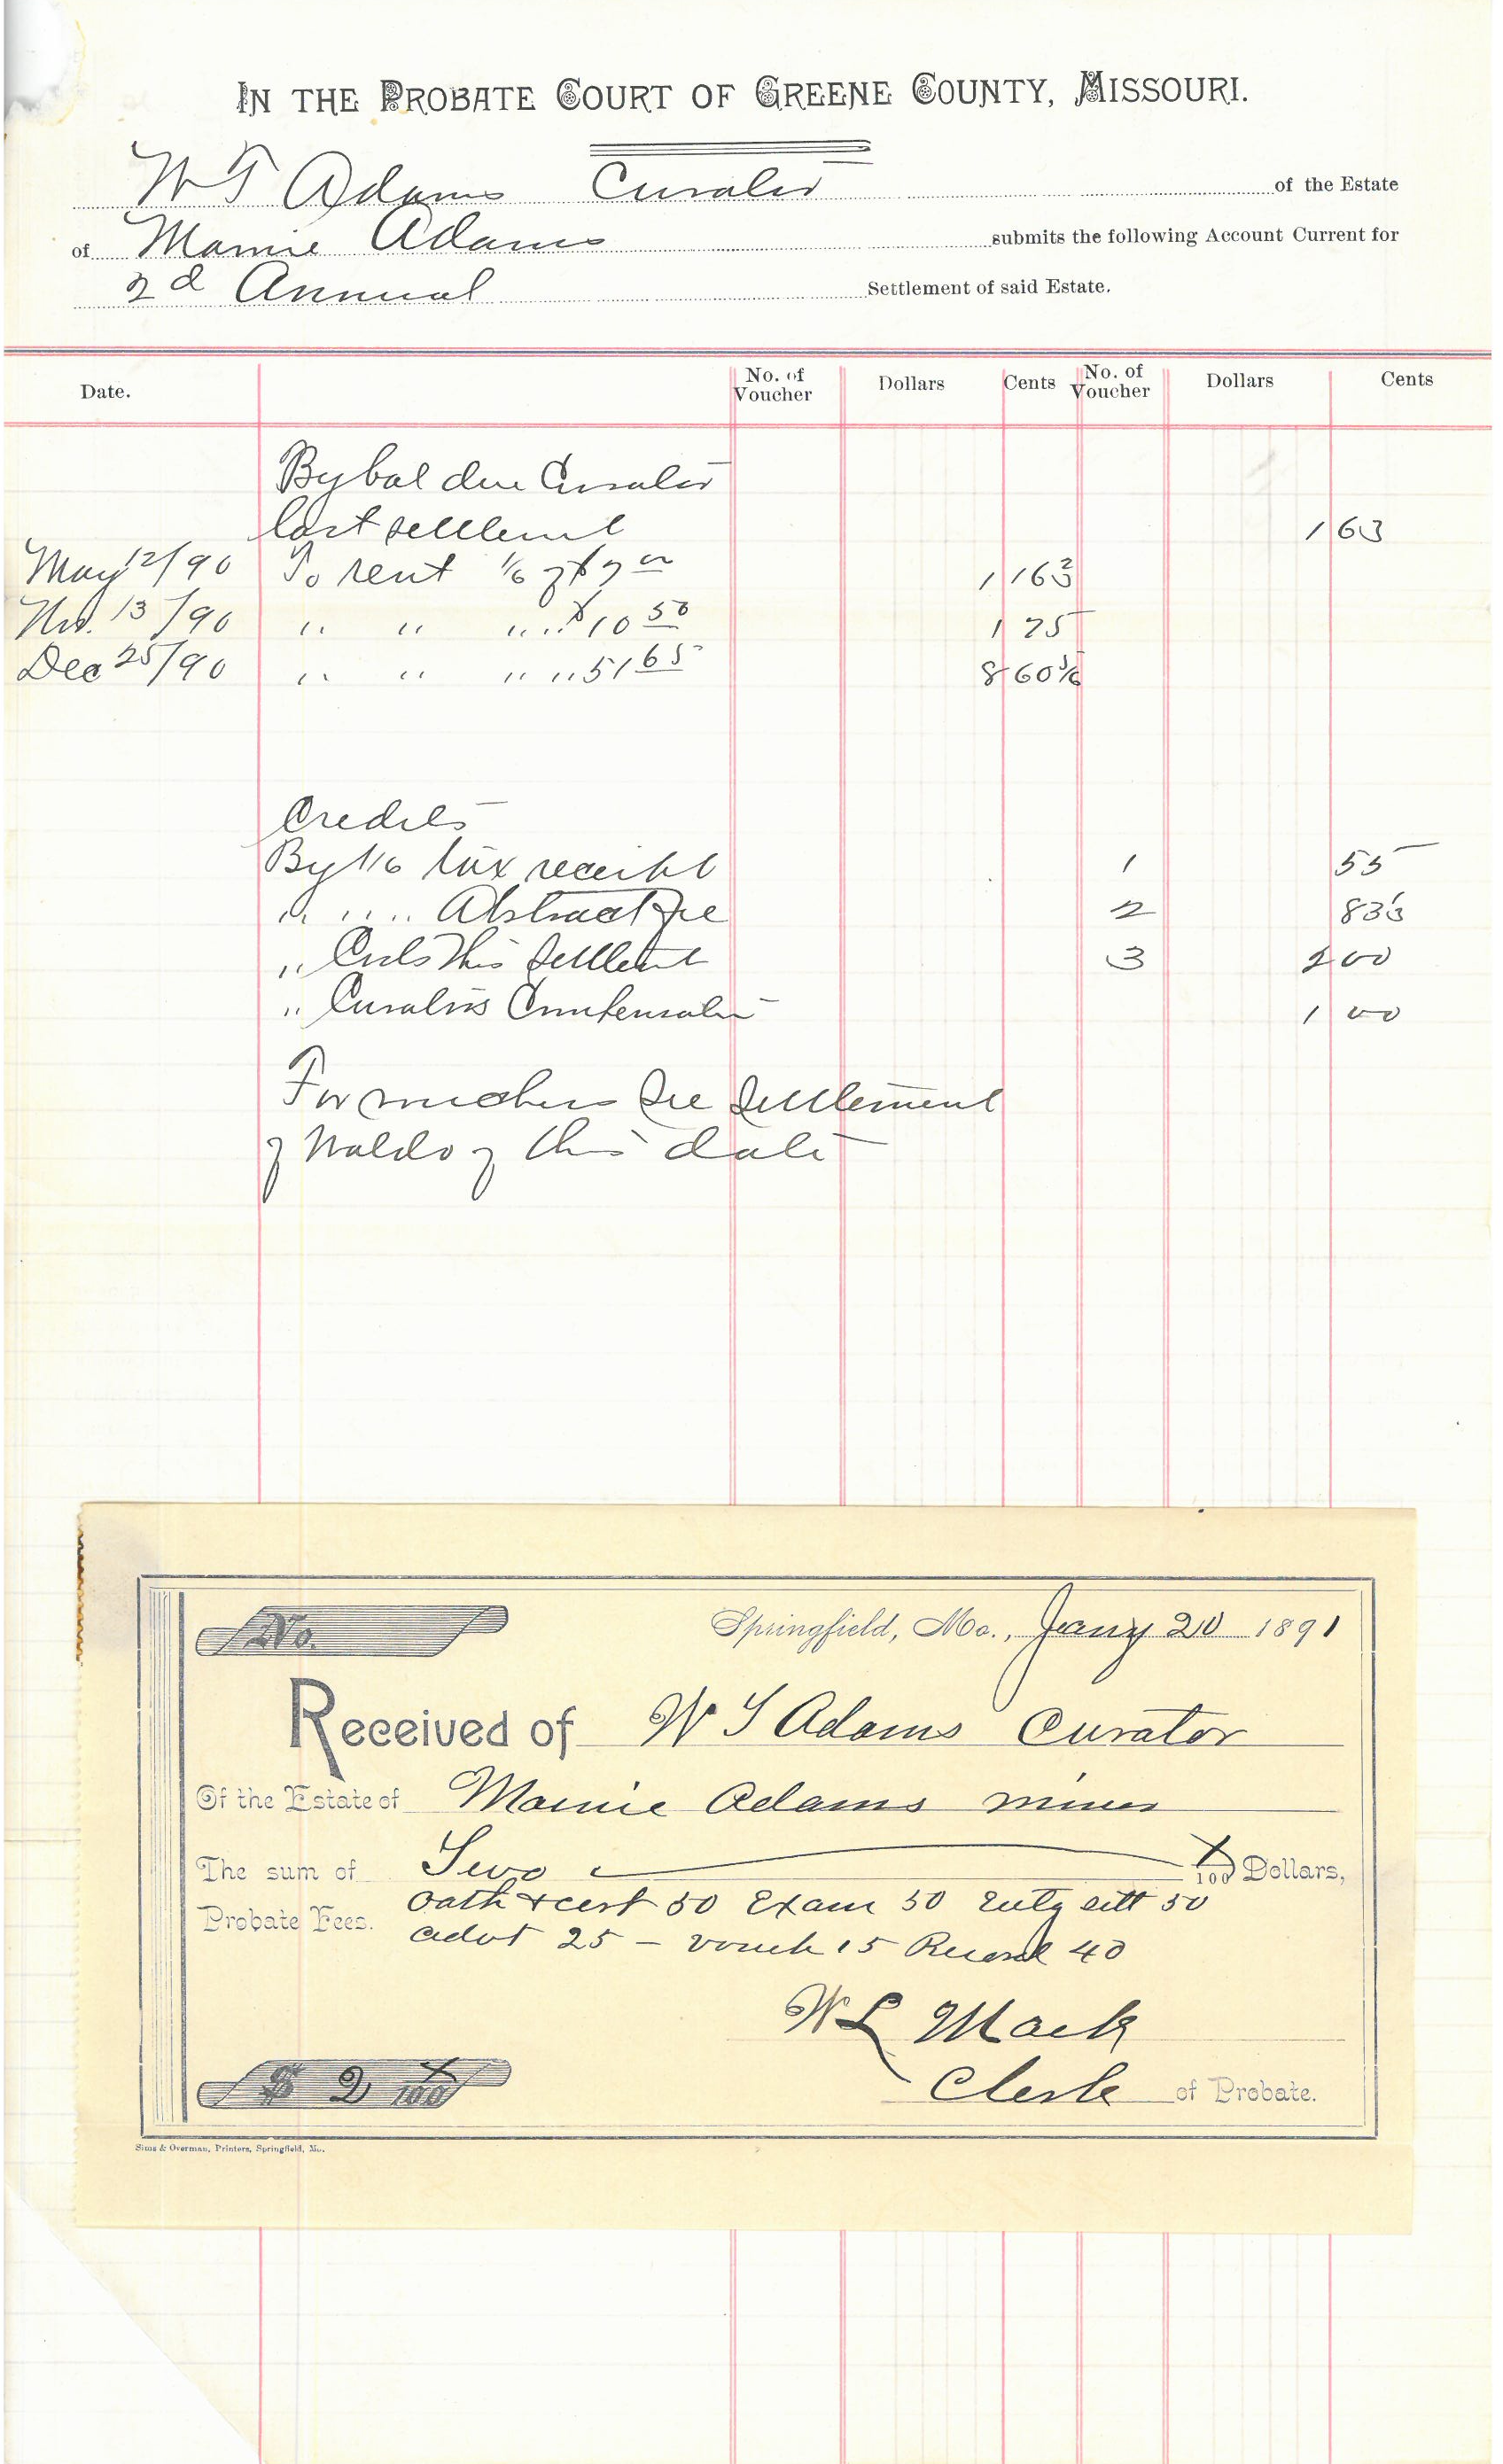 IN THE PROBATE COURT OF GREENE COUNTY, MISSOURI.
W T Adams Curator of the Estate
of Mamie Adams submits the following Account Current for
2d Annual Settlement of said Estate.
Date. No. of Voucher Dollars Cents No. of Voucher Dollars Cents
By bal due Curator
last settlement 1 63
May 12/90 To rent 1/6 of $7 00 1 16 2/3
Nov. 13/90 " " " " $10 50 1 75
Dec 25/90 " " " " 51 65 8 60 5/6
Credits
By 1/6 tax receipt 1 55
" " " Abstract fee 2 83 1/3
" Costs this settlement 3 2 00
" Curators Compensation 1 00
For vouchers see settlement
of Waldo of this date
No. Springfield, Mo., Jany 20 1891
Received of W T Adams Curator
Of the Estate of Mamie Adams minor
The sum of Two X/100 Dollars,
Probate Fees. Oath & cert 50 Exam 50 Entg sett 50
advt 25 - vouch 15 Record 40
W L Mack
$ 2 X/100 Clerk of Probate.
Sims & Overman, Printers, Springfield, Mo.